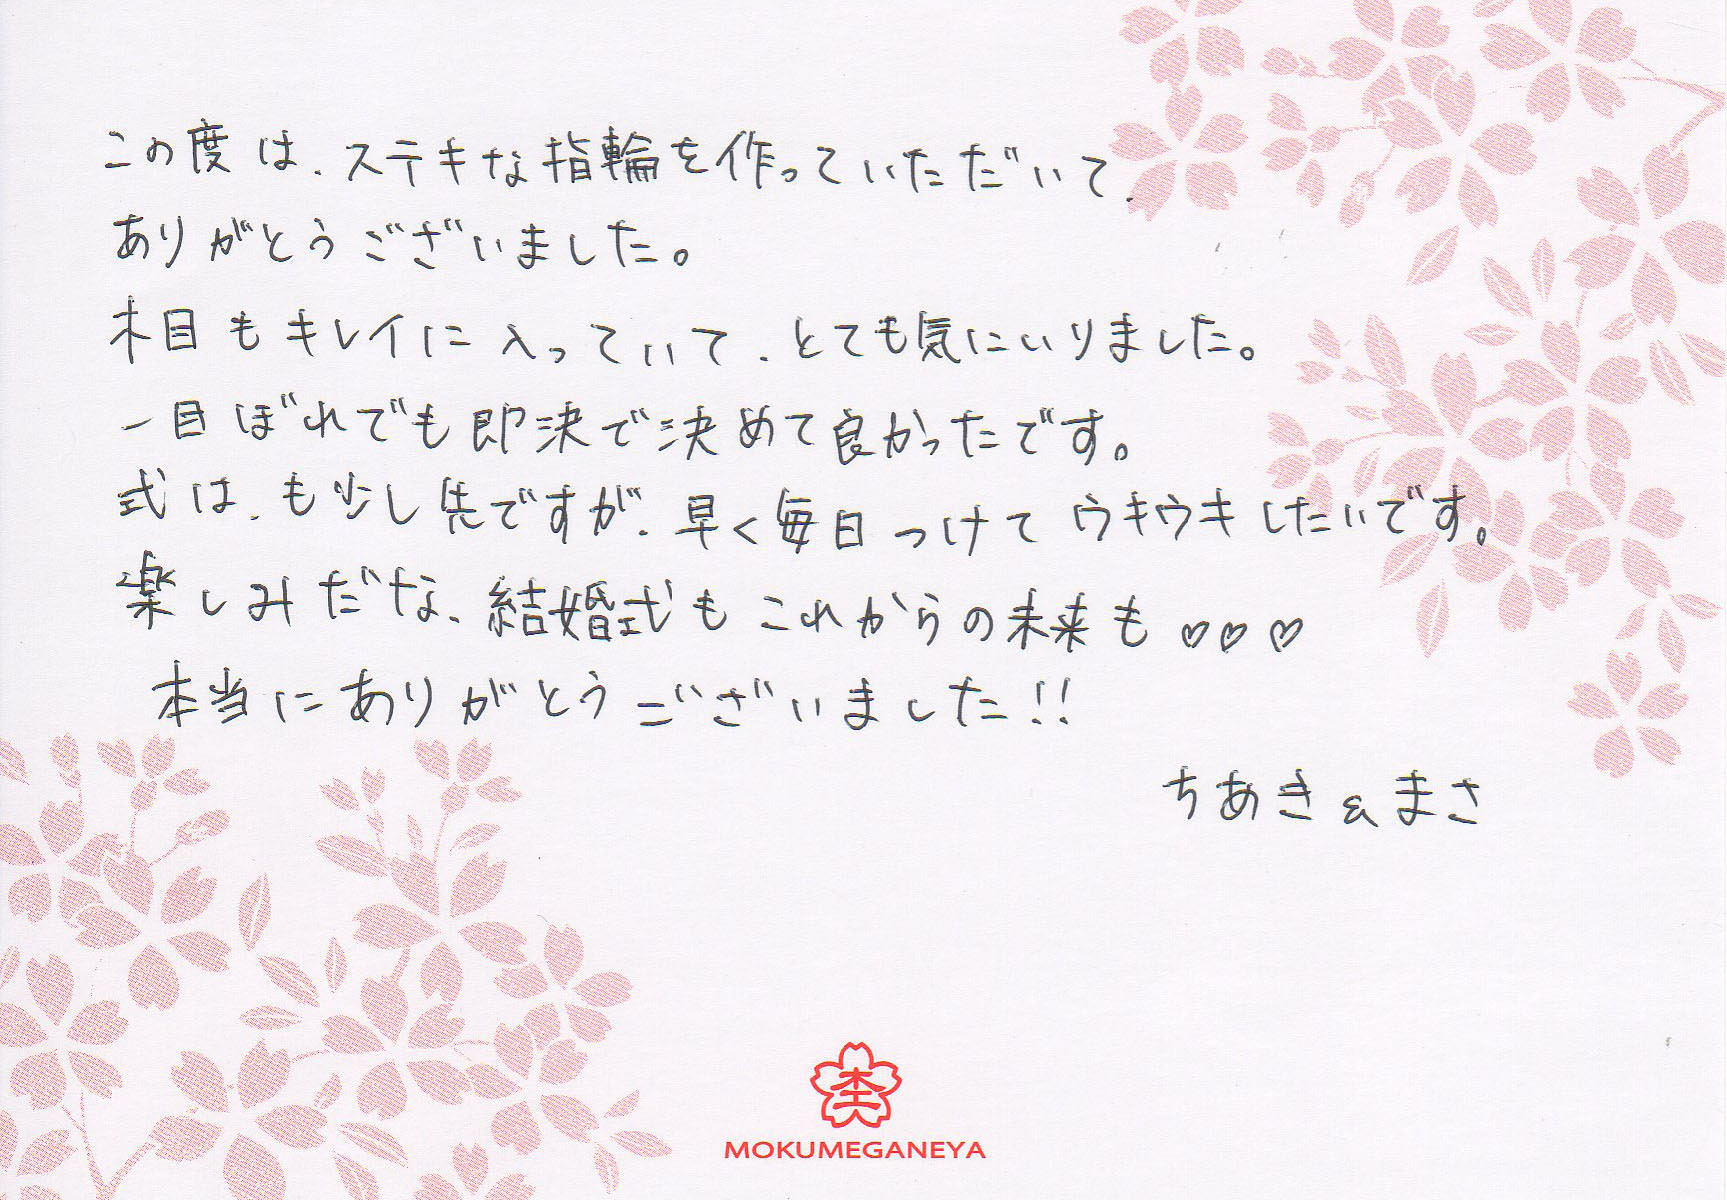 この度は、ステキな指輪を作っていただいて、
ありがとうございました。
木目もキレイに入っていて、とても気にいりました。
一目ぼれでも即決で決めて良かったです。
式は、も少し先ですが、早く毎日つけてウキウキしたいです。
楽しみだな、結婚式もこれからの未来も♡♡♡
本当にありがとうございました!!
ちあき&まさ
MOKUMEGANEYA